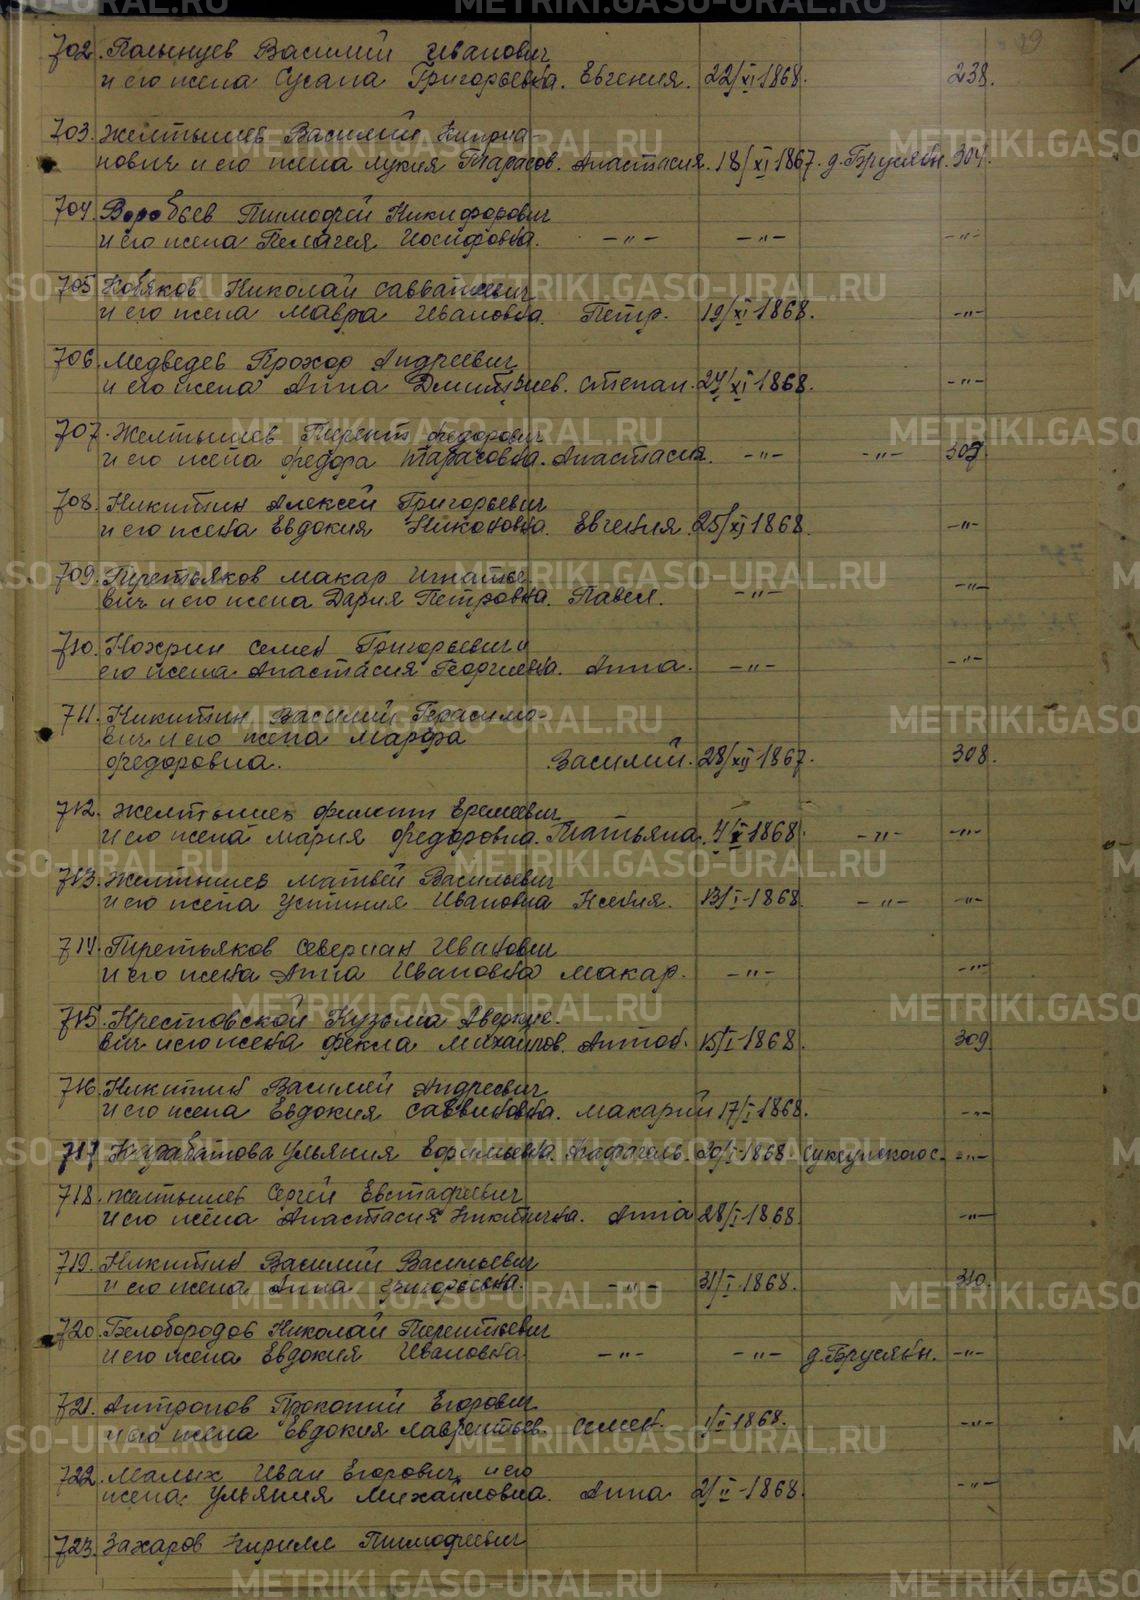 METRIKI.GASO-URAL.RU
19
702. Полынцев Василий Иванович
и его жена Сусана Григорьевна. Евгения. 22/XI 1868. 238.
703. Желтышев Василий Киприа-
нович и его жена Лукия Тарасов. Анастасия. 18/XI 1867. д. Брусян. 304.
704. Воробьев Тимофей Никифорович
и его жена Пелагея Иосифовна. -"- -"- -"-
705. Кобяков Николай Савватиевич
и его жена Мавра Ивановна. Петр. 19/XI-1868. -"-
706. Медведев Прохор Андреевич
и его жена Анна Дмитриев. Степан. 24/XI 1868. -"-
707. Желтышев Терент. Федорович
и его жена Федора Тарасовна. Анастасия. -"- -"- 307
708. Никитин Алексей Григорьевич
и его жена Евдокия Никоновна. Евгения. 25/XI 1868. -"-
709. Третьяков Макар Игнатье
вич и его жена Дария Петровна. Павел. -"- -"-
710. Нохрин Семен Григорьевич и
его жена Анастасия Георгиевна. Анна. -"- -"-
711. Никитин Василий Герасимо-
вич и его жена Марфа
Федоровна. Василий. 28/XII-1867. 308.
712. Желтышев Филипп Еремеевич
и его жена Мария Федоровна. Татьяна. 4/I 1868. -"- -"-
713. Желтышев Матвей Васильевич
и его жена Устиния Ивановна Ксения. 13/I-1868. -"- -"-
714. Третьяков Севериан Иванович
и его жена Анна Ивановна Макар. -"- -"-
715. Крестовской Кузьма Аверкие-
вич и его жена Фекла Михайлов. Антон. 15/I-1868. 309
716. Никитин Василий Андреевич
и его жена Евдокия Саввиновна. Макарий 17/I-1868. -"-
717 Ульяния 20/I-1868 Суксунского с. -"-
718. Желтышев Сергей Евстафиевич
и его жена Анастасия Никитична. Анна 28/I-1868. -"-
719. Никитин Василий Васильевич
и его жена Анна Григорьевна. -"- 31/I-1868. 310.
720. Белобородов Николай Терентьевич
и его жена Евдокия Ивановна -"- -"- д. Брусян. -"-
721. Антропов Прокопий Егорович
и его жена Евдокия Лаврентьев. Семен. 1/II-1868. -"-
722. Малых Иван Егорович и его
жена Ульяния Михайловна. Анна 2/II-1868. -"-
723. Захаров Кирилл Тимофеевич